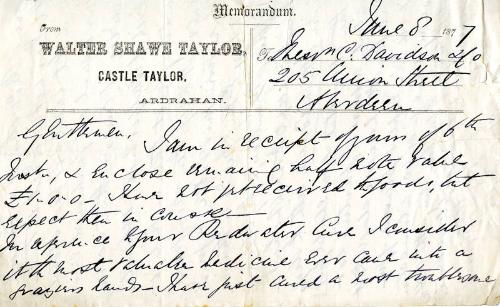 Memorandum.
From
June 8 1877
WALTER SHAWE TAYLOR,
To Messrs C. Davidson & Co
CASTLE TAYLOR,
205 Union Street
ARDRAHAN.
Aberdeen
Gentlemen, I am in receipt of yours of 6th
Inst, & enclose remaining half note value
£1-0-0- I have not yet received the goods, but
expect them in course -
In reference to your Redwater Cure I consider
it the most valuable medicine ever came into a
graziers hands - I have just cured a most troublesome